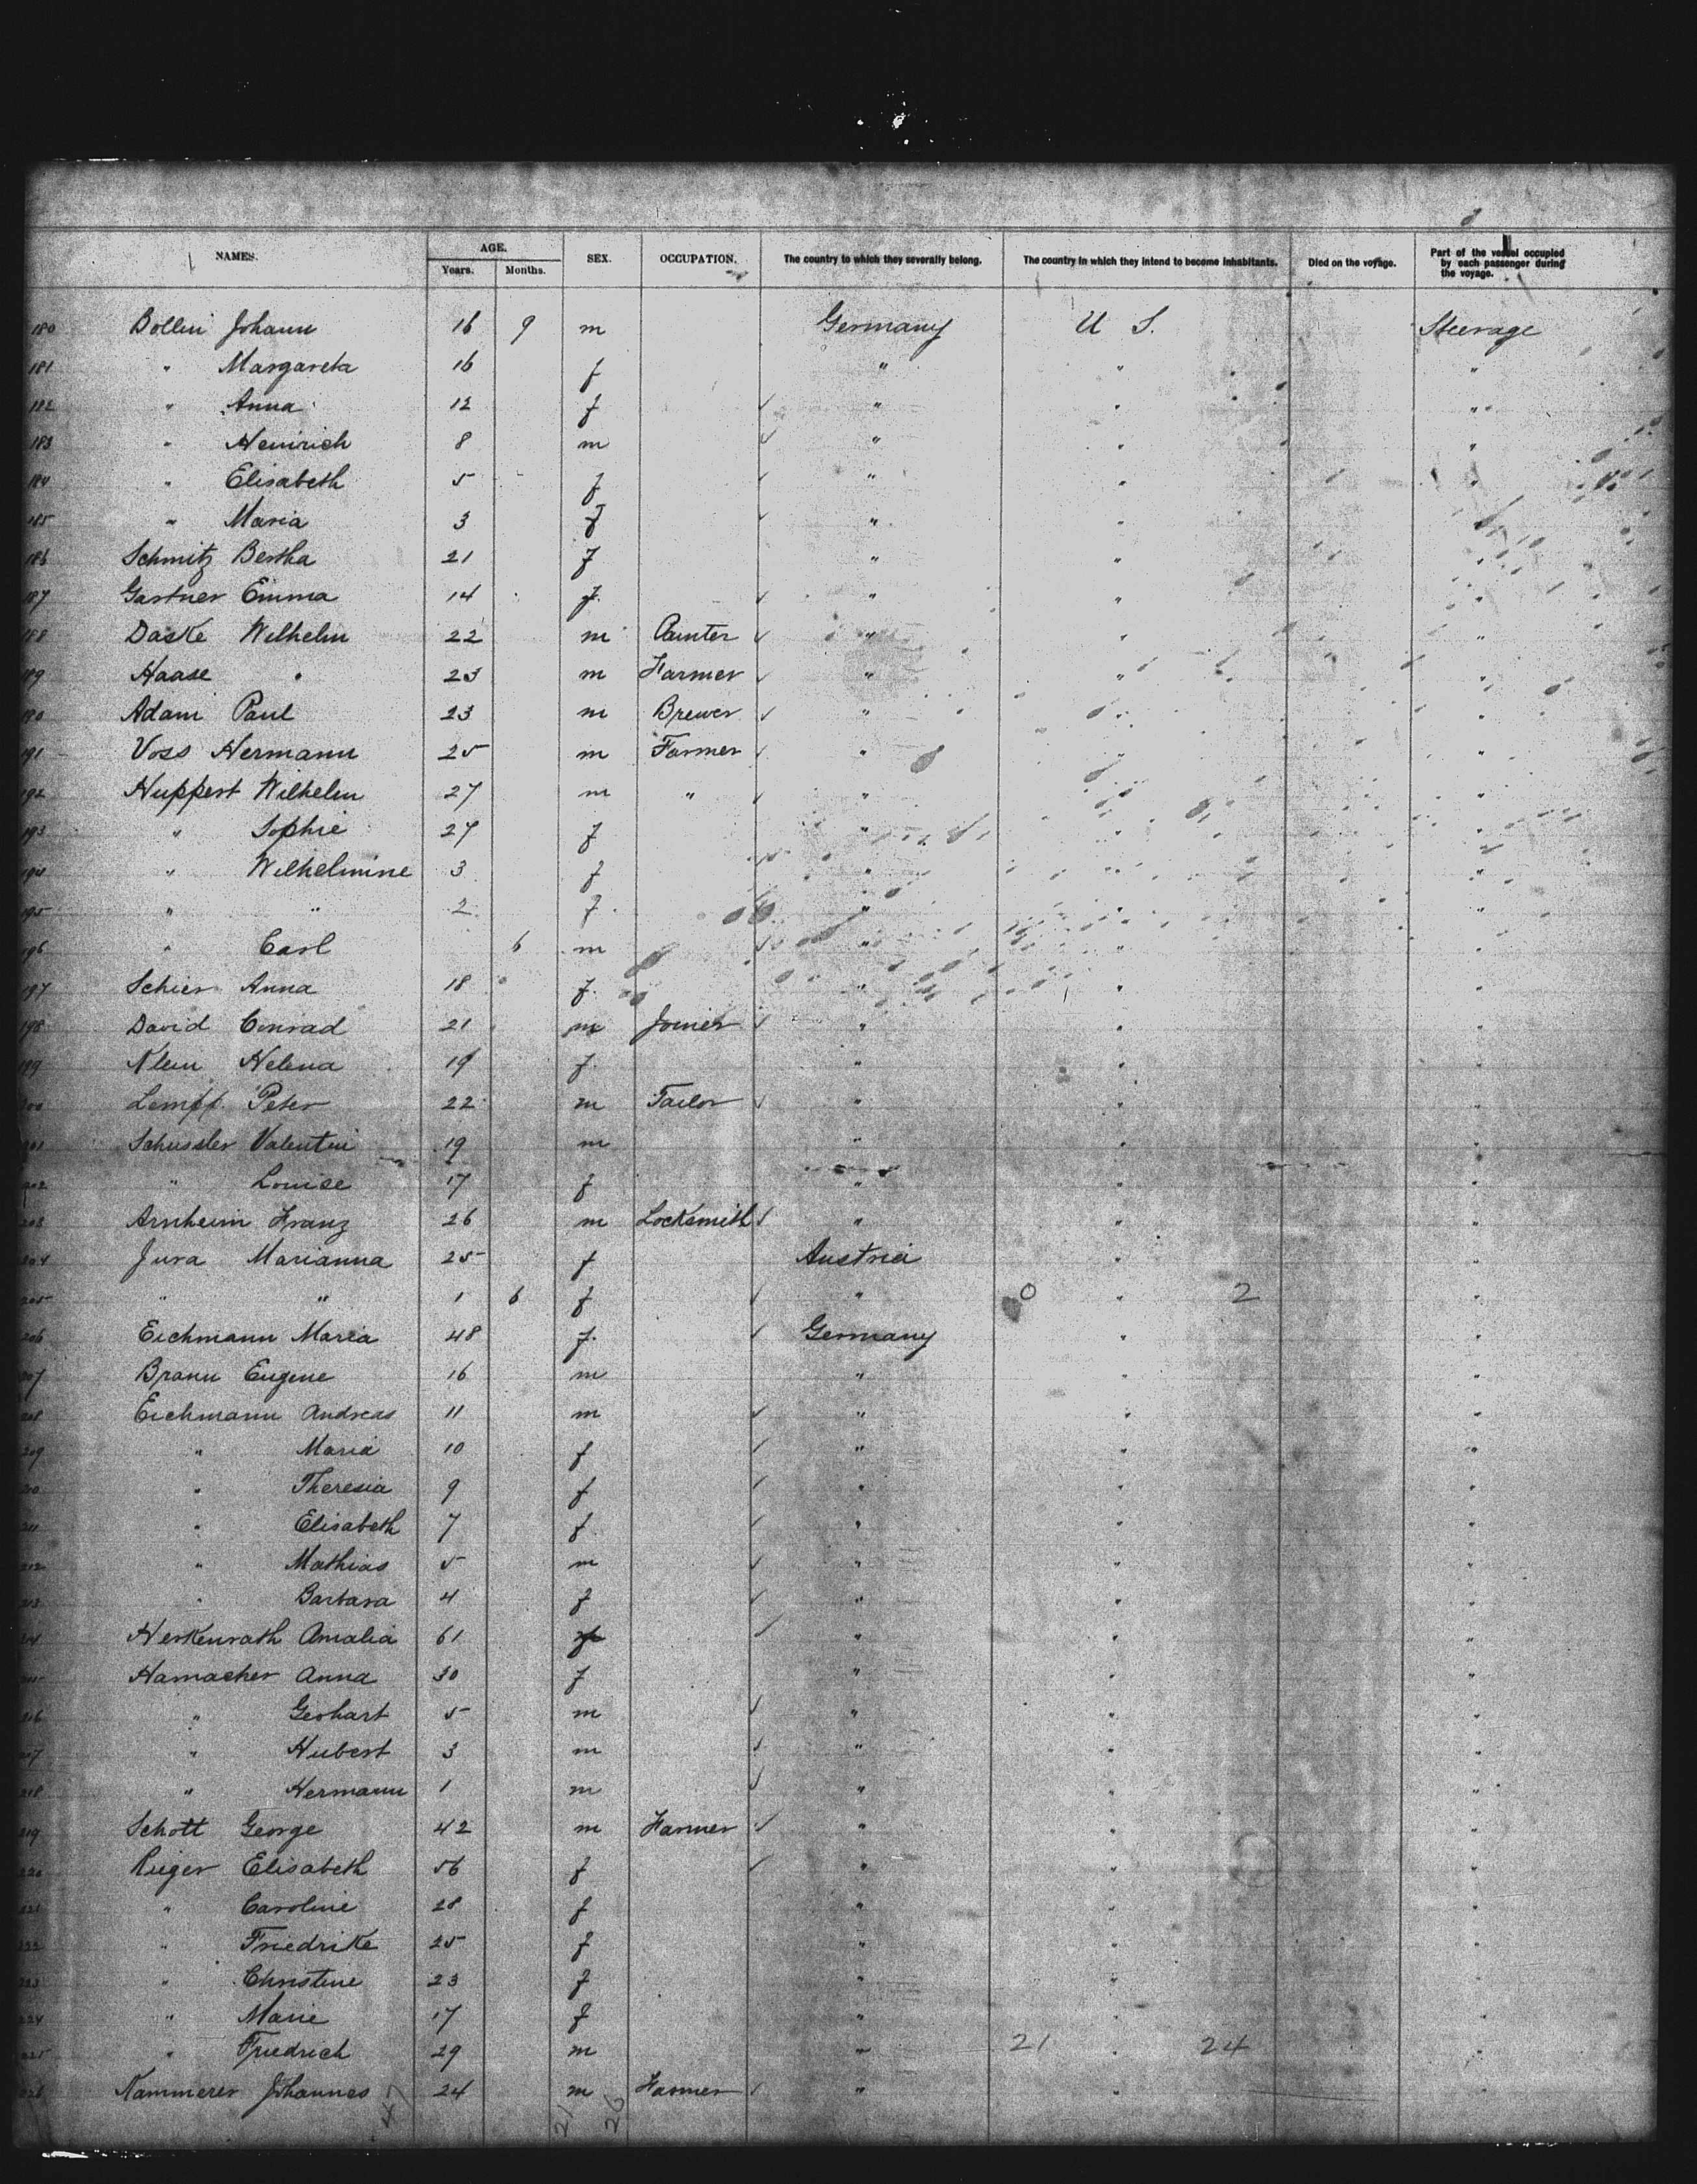 3
NAMES. AGE. SEX. OCCUPATION. The country to which they severally belong. The country in which they intend to become inhabitants. Died on the voyage. Part of the vessel occupied by each passenger during the voyage.
Years. Months.
180 Bollin Johann 16 9 m Germany U S. Steerage
181 " Margareta 16 f " " "
182 " Anna 12 f " " "
183 " Heinrich 8 m " " "
184 " Elisabeth 5 f " " "
185 " Maria 3 f " " "
186 Schmitz Bertha 21 f " " "
187 Gartner Emma 14 f " " "
188 Daske Wilhelm 22 m Painter " " "
189 Haase " 23 m Farmer " " "
190 Adam Paul 23 m Brewer " " "
191 Voss Hermann 25 m Farmer " " "
192 Huppert Wilhelm 27 m " " " "
193 " Sophie 27 f " " "
194 " Wilhelmine 3 f " " "
195 " " 2 f " " "
196 " Carl 6 m " " "
197 Schier Anna 18 f " " "
198 David Conrad 21 m Joiner " " "
199 Klein Helena 19 f " " "
200 Lempp Peter 22 m Tailor " " "
201 Schussler Valentin 19 m " " "
202 " Louise 17 f " " "
203 Arnheim Franz 26 m Locksmith " " "
204 Jura Marianna 25 f Austria " "
205 " " 1 6 f " 0 " 2 "
206 Eichmann Maria 48 f Germany " "
207 Braun Eugene 16 m " " "
208 Eichmann Andreas 11 m " " "
209 " Maria 10 f " " "
210 " Theresia 9 f " " "
211 " Elisabeth 7 f " " "
212 " Mathias 5 m " " "
213 " Barbara 4 f " " "
214 Herkenrath Amalia 61 f " " "
215 Hamacher Anna 30 f " " "
216 " Gerhart 5 m " " "
217 " Hubert 3 m " " "
218 " Hermann 1 m " " "
219 Schott George 42 m Farmer " " "
220 Rieger Elisabeth 56 f " " "
221 " Caroline 28 f " " "
222 " Friedrike 25 f " " "
223 " Christine 23 f " " "
224 " Marie 17 f " " "
225 " Friedrich 29 m " 21 " 24 "
226 Kammerer Johannes 24 m Farmer " " "
47 21 26